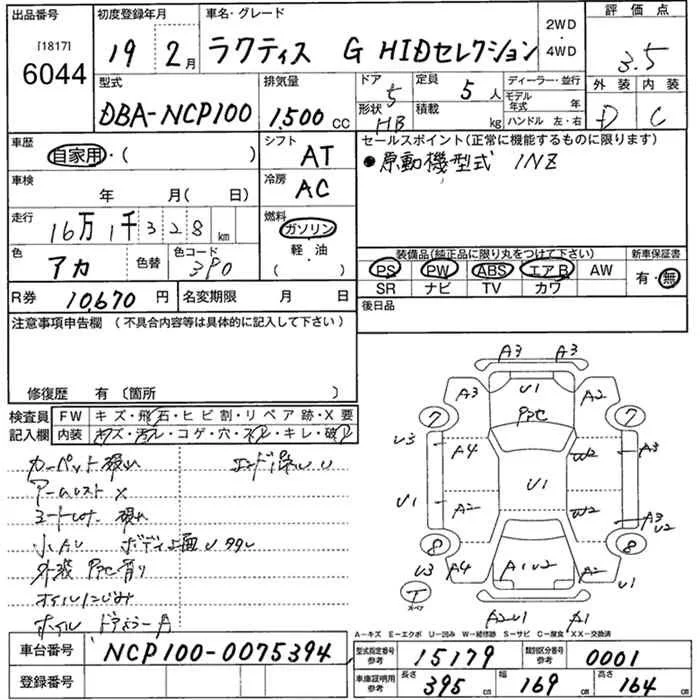 出品番号 初度登録年月 車名・グレード 2WD・4WD 評価点
[1817] 6044 19年 2月 ラクティス G HIDセレクション 3.5
型式 排気量 ドア 形状 定員 積載 ディーラー・並行 モデル年式 年 ハンドル 左・右 外装 内装
DBA-NCP100 1,500cc 5 HB 5人 kg D C
車歴 自家用・( ) シフト AT セールスポイント(正常に機能するものに限ります)
車検 年 月(日) 冷房 AC ●原動機型式 1NZ
走行 16万1千328km 燃料 ガソリン 軽・油
色 アカ 色替 色コード 3P0 装備品(純正品に限り丸をつけて下さい) 新車保証書
PS PW ABS エアB AW 有・無
SR ナビ TV カワ
R券 10,670円 名変期限 月 日 後日品
注意事項申告欄(不具合内容等は具体的に記入して下さい)
修復歴 有〔箇所 〕
検査員 FW キズ・飛石・ヒビ割・リペア跡・X要
記入欄 内装 キズ・汚レ・コゲ・穴・スレ・キレ・破レ
カーペット
アームレスト X
小A,U ボディ上面U
外装
オイルにじみ
A3 A3
A3 U1 A2
7 7
U3 A4 W2 A3
U1 U1
A2 W2 A3 U2
8 8
U3 A4 A1 U2 A2 U1
T スペア
A2U1 A1
A-キズ E-エクボ U-凹み W-補修跡 S-サビ C-腐食 XX-交換済
車台番号 NCP100-0075394 型式指定番号 参考 15179 類別区分番号 参考 0001
登録番号 車庫証明用 参考 長さ 395cm 幅 169cm 高さ 164cm